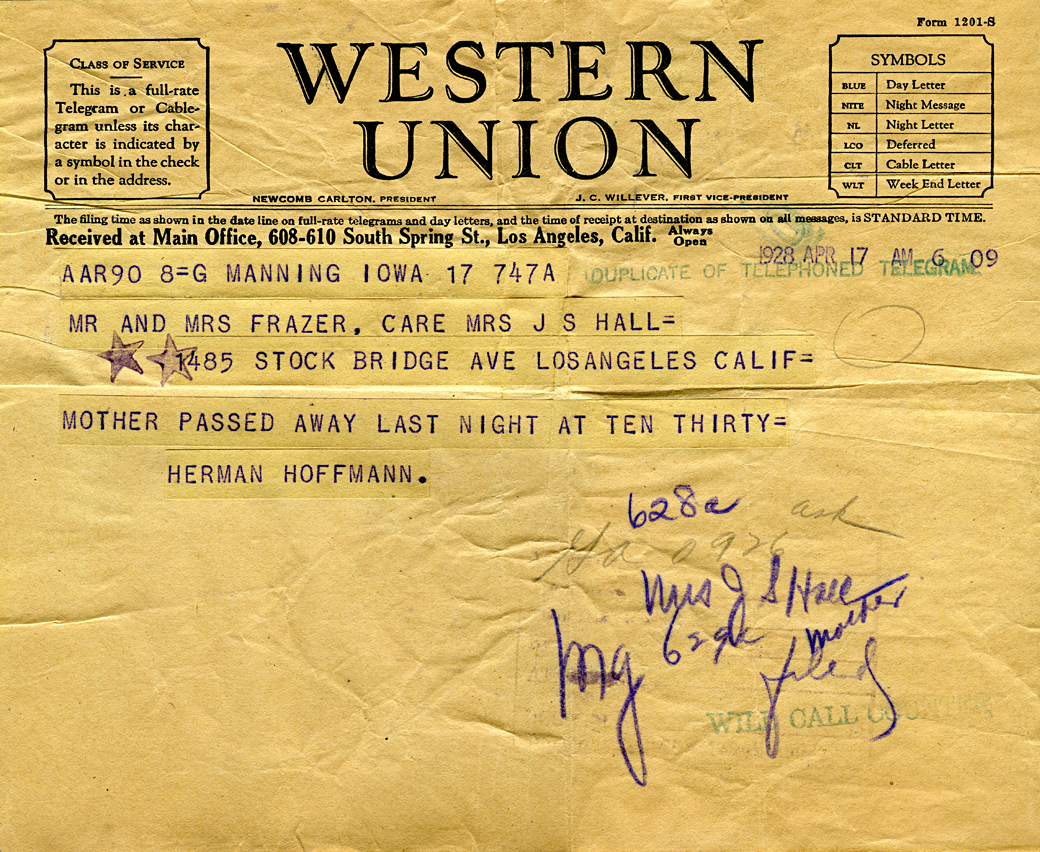 Form 1201-S
CLASS OF SERVICE
This is a full-rate
Telegram or Cable-
gram unless its char-
acter is indicated by
a symbol in the check
or in the address.
WESTERN
UNION
NEWCOMB CARLTON, PRESIDENT
J. C. WILLEVER, FIRST VICE-PRESIDENT
SYMBOLS
BLUE Day Letter
NITE Night Message
NL Night Letter
LCO Deferred
CLT Cable Letter
WLT Week End Letter
The filing time as shown in the date line on full-rate telegrams and day letters, and the time of receipt at destination as shown on all messages, is STANDARD TIME.
Received at Main Office, 608-610 South Spring St., Los Angeles, Calif. Always Open
1928 APR 17 AM 6 09
AAR90 8=G MANNING IOWA 17 747A
DUPLICATE OF TELEPHONED TELEGRAM
MR AND MRS FRAZER, CARE MRS J S HALL=
1485 STOCK BRIDGE AVE LOSANGELES CALIF=
MOTHER PASSED AWAY LAST NIGHT AT TEN THIRTY=
HERMAN HOFFMANN.
628a ask
Mrs J S Hall
629a mother
WILL CALL COUNTER